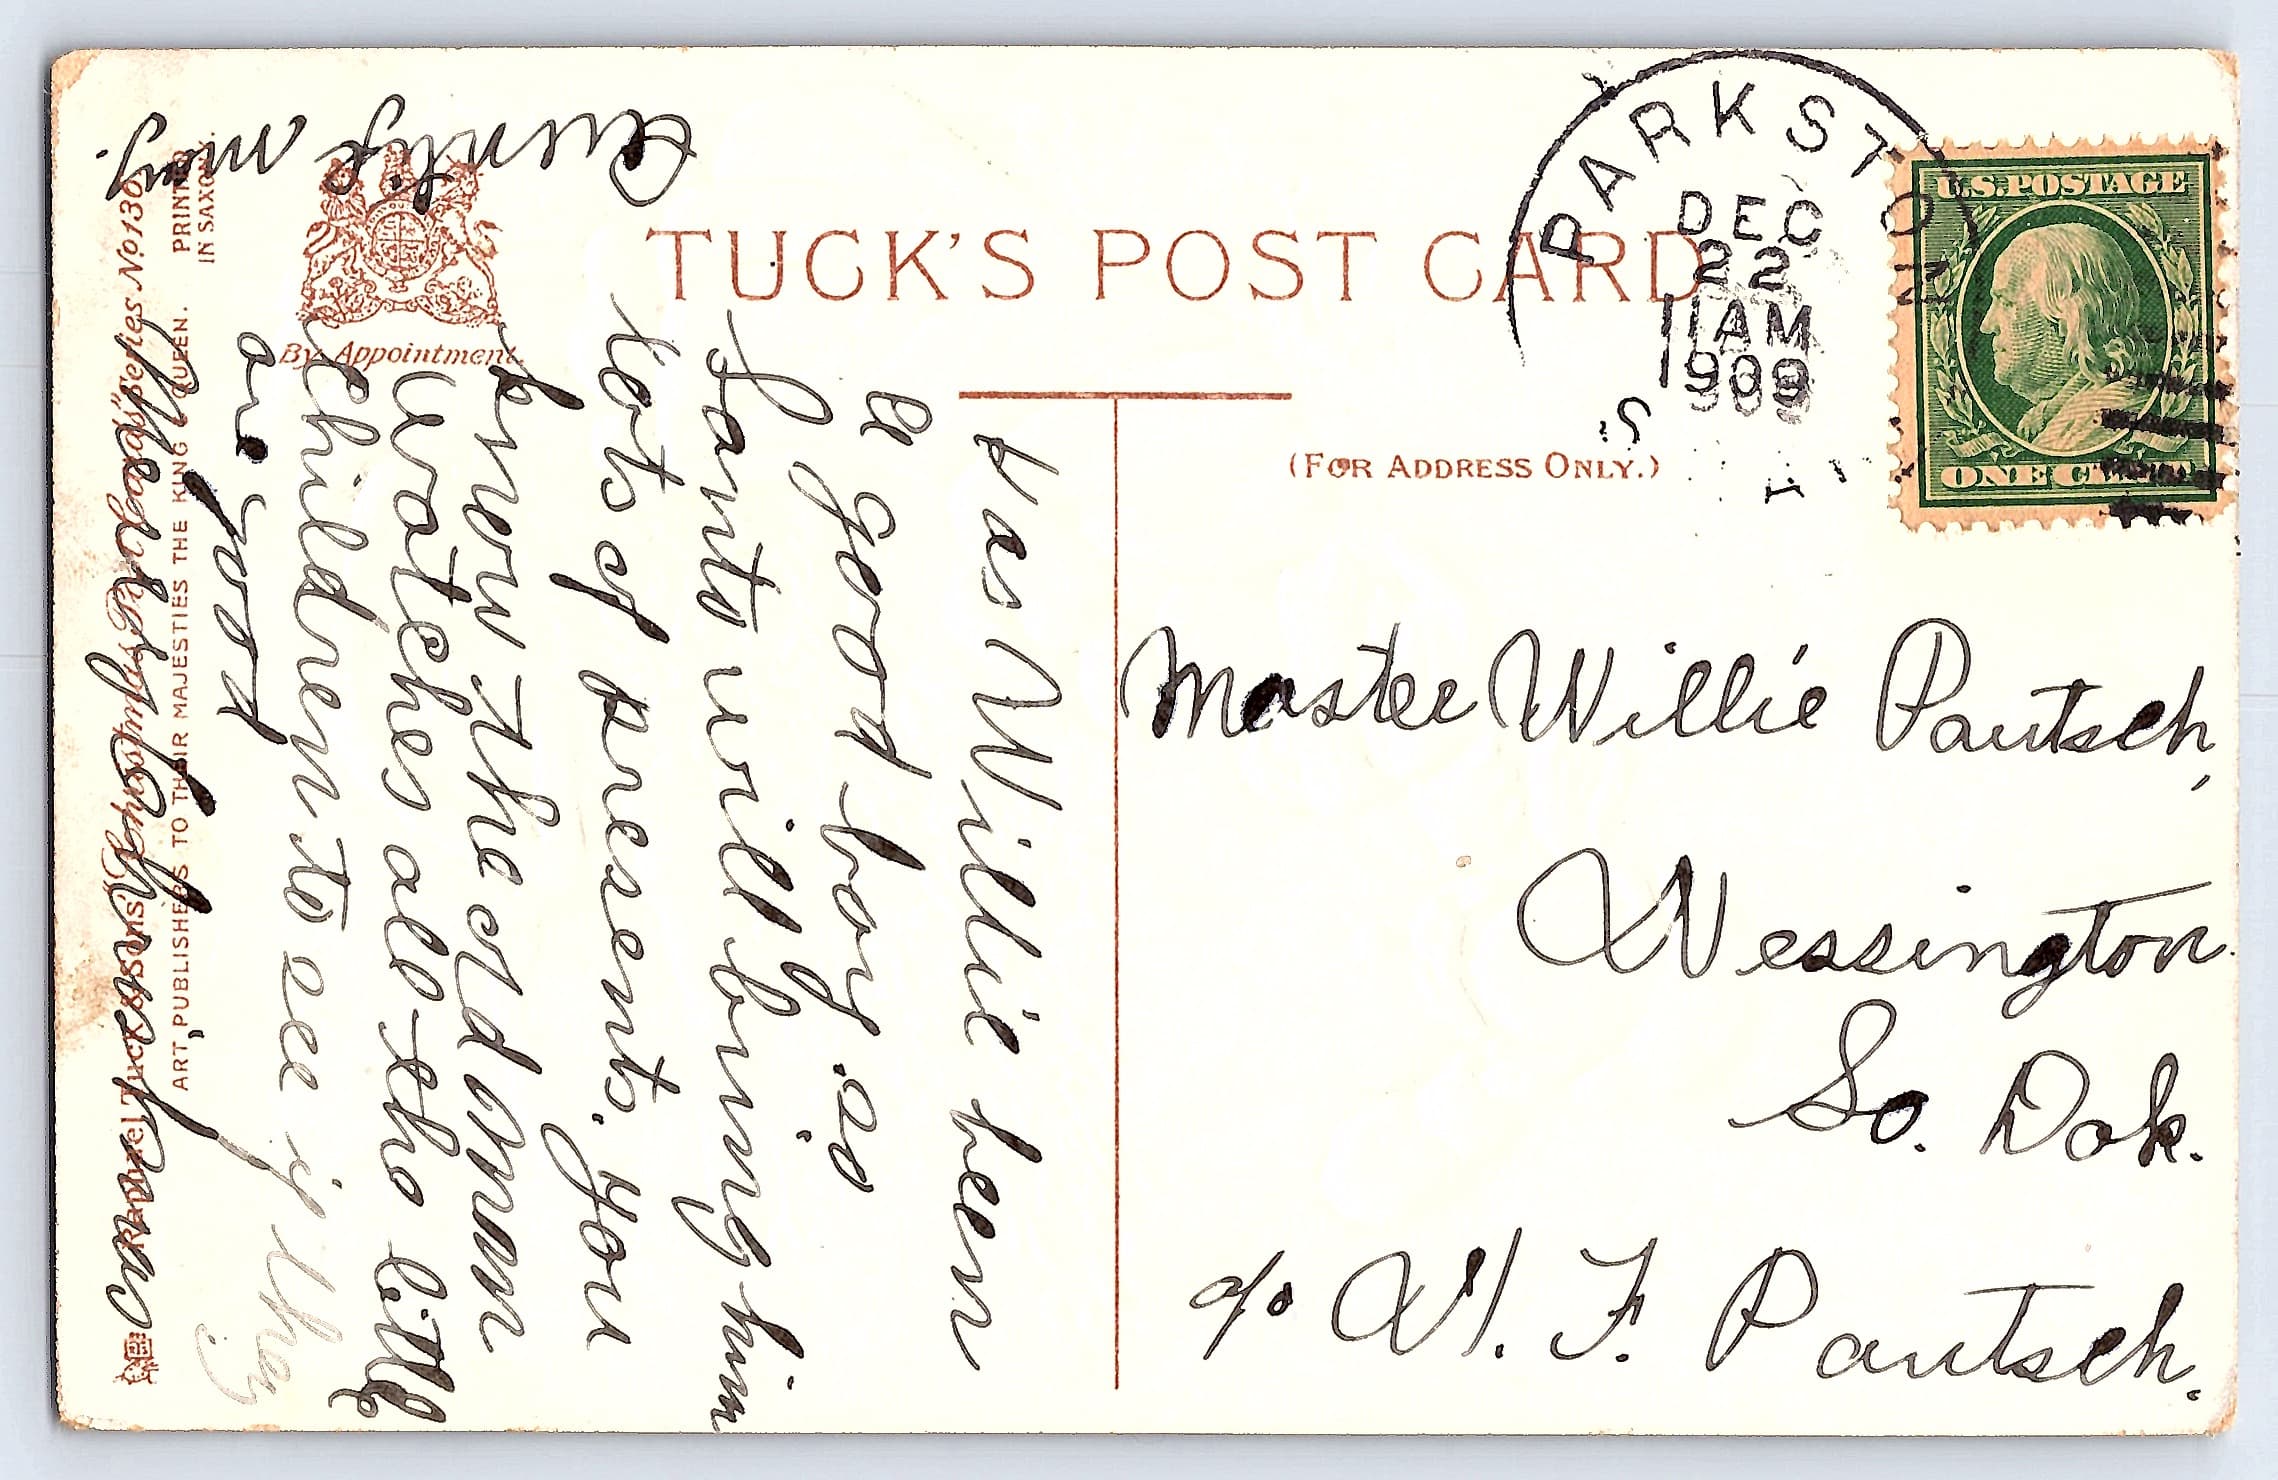 TUCK'S POST CARD
By Appointment.
(FOR ADDRESS ONLY.)
PARKSTON
DEC
22
11 AM
1909
S
U.S. POSTAGE
ONE
Master Willie Pautsch,
Wessington
So. Dak.
c/o W. F. Pautsch.
Has Willie been
a good boy. so
Santa will bring him
lots of presents. You
know the old man
watches all the little
Children to see if they
are good
Auntie May.
Raphael Tuck & Sons' "Christmas Series No 136
ART PUBLISHERS TO THEIR MAJESTIES THE KING & QUEEN.
PRINTED
IN SAXONY.